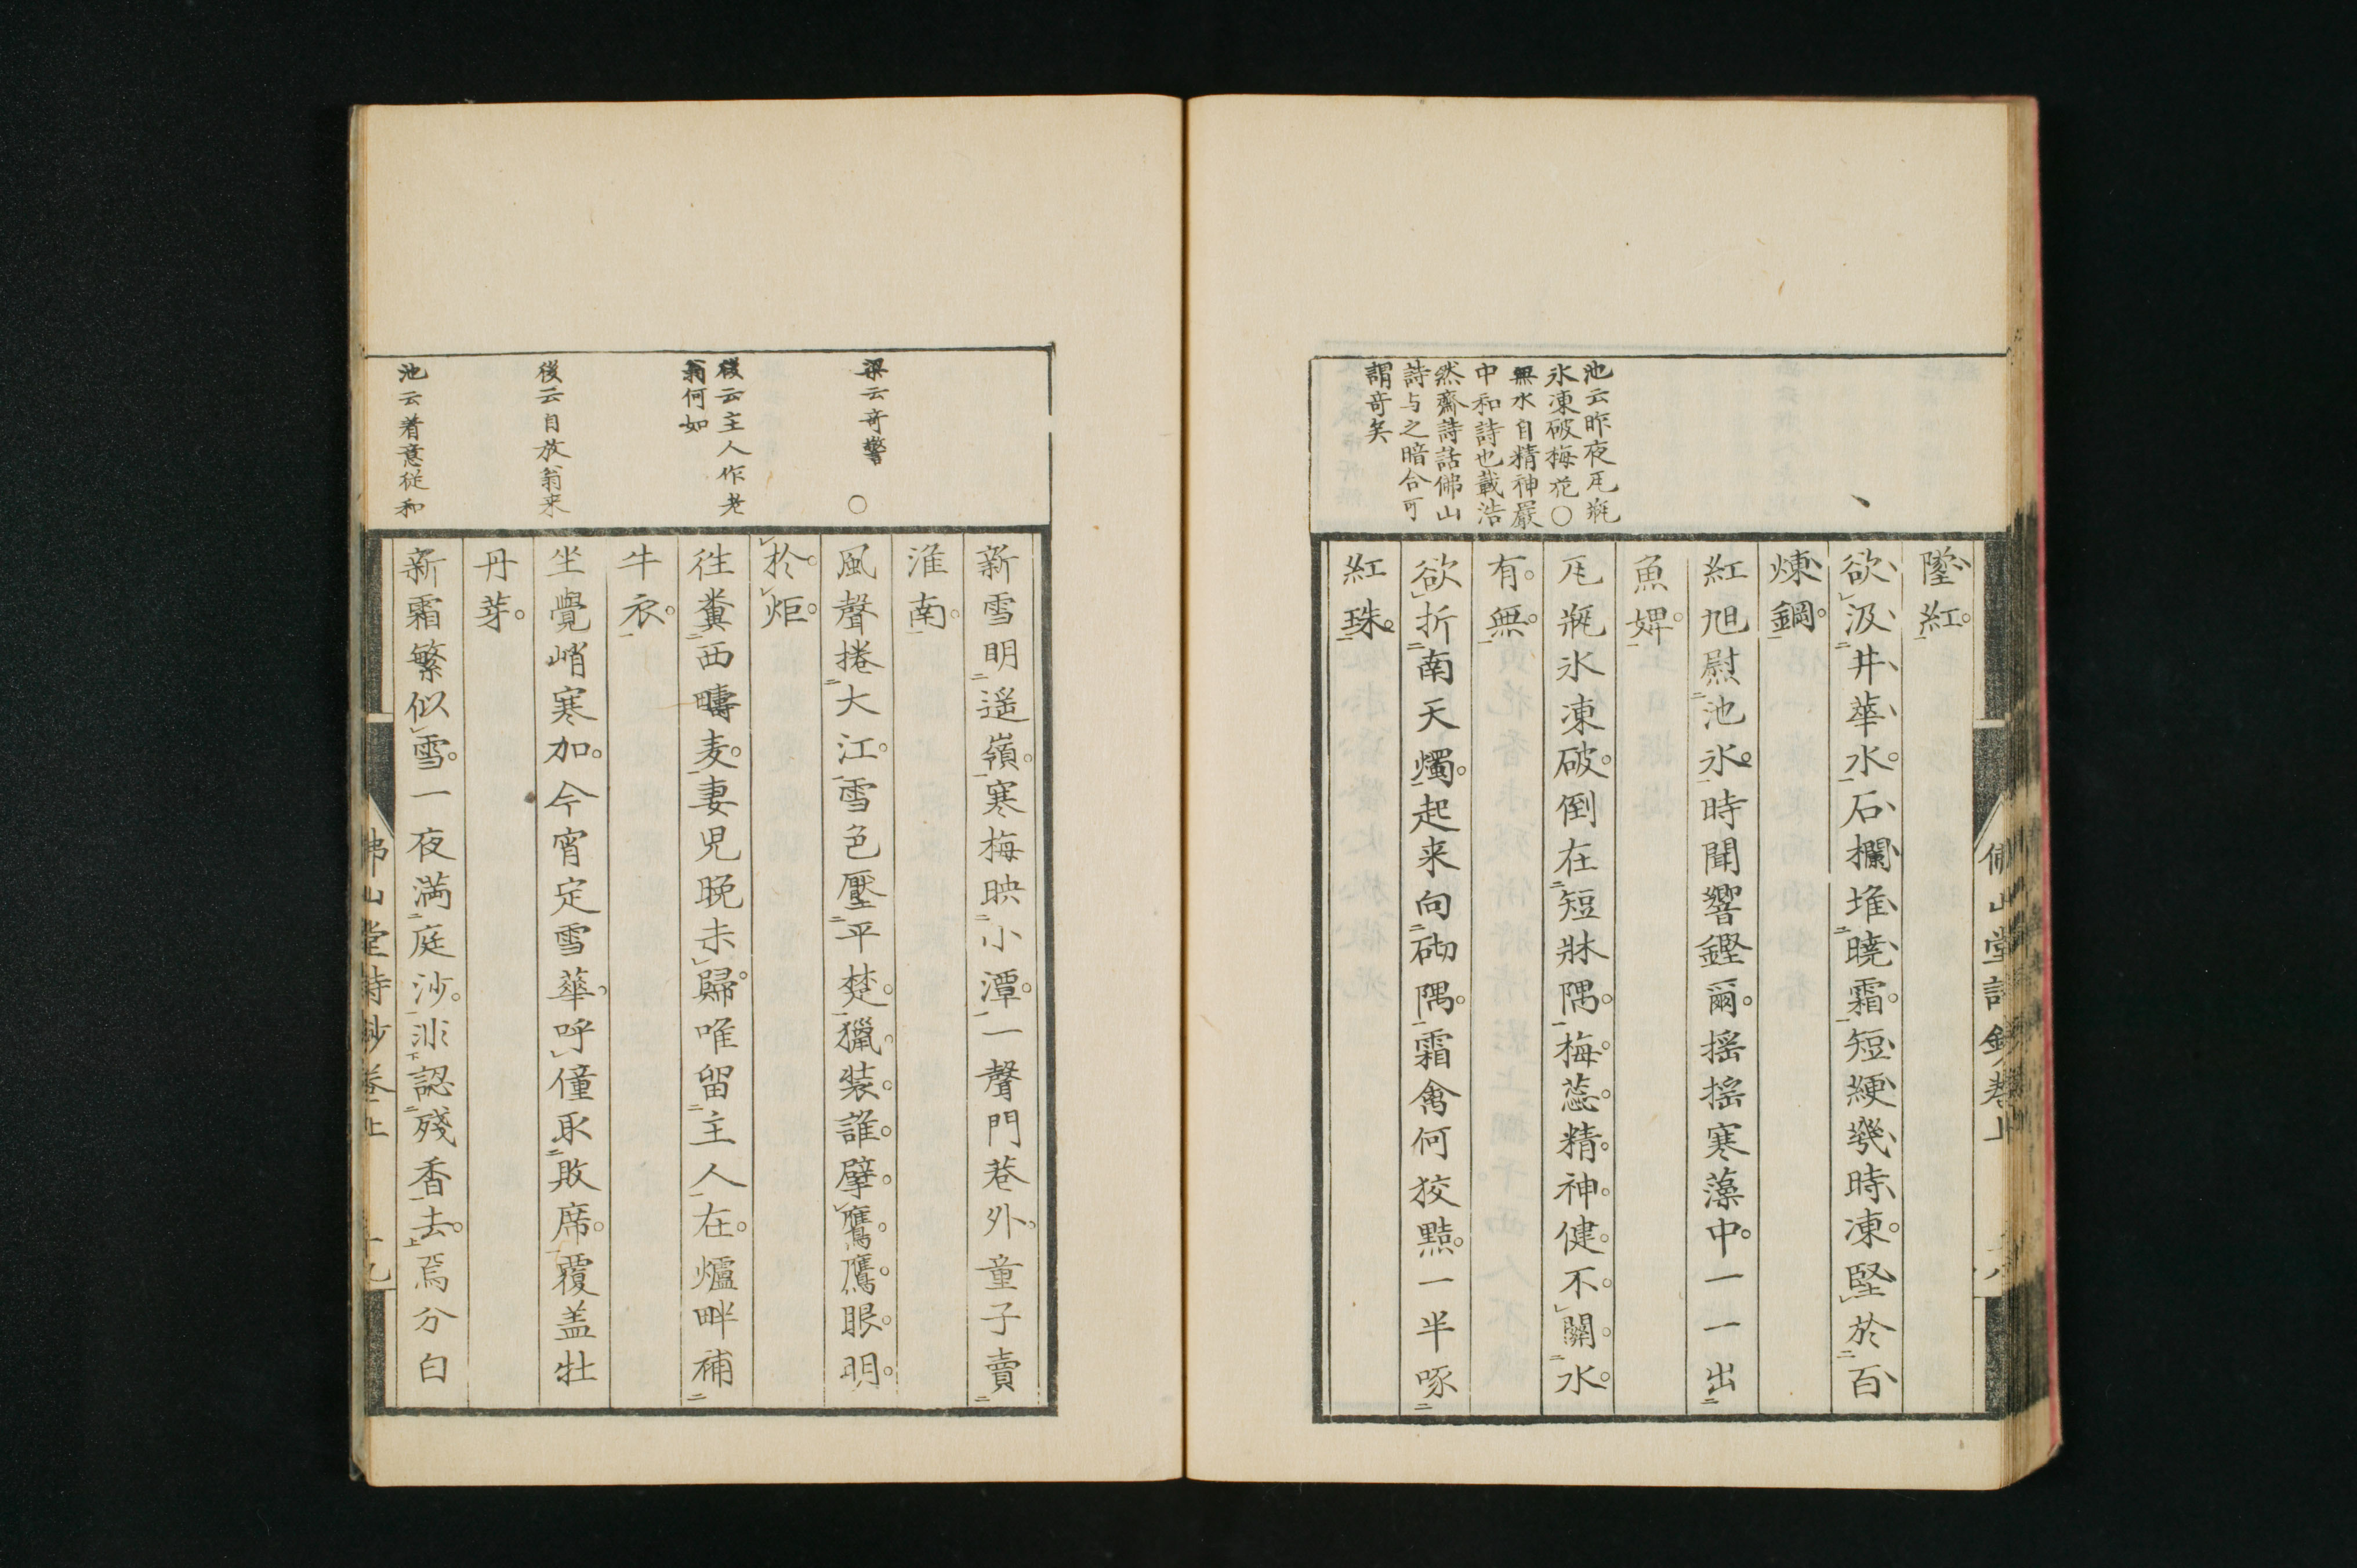 池云昨夜瓦瓶
氷凍破梅花○
無水自精神嚴
中和詩也載浩
然齋詩話佛山
詩与之暗合可
謂奇矣
墜紅
欲汲井華水石欄堆曉霜短綆幾時凍堅於百
煉鋼
紅旭慰池氷時聞響鏗爾搖搖寒藻中一一出
魚婢
瓦瓶氷凍破倒在短牀隅梅蕊精神健不關水
有無
欲折南天燭起来向砌隅霜禽何狡黠一半啄
紅珠
佛山堂詩鈔卷上
梁云奇警
○
後云主人作老
翁何如
後云自放翁来
池云着意従和
新雪明遥嶺寒梅映小潭一聲門巷外童子賣
淮南
風聲捲大江雪色壓平楚獵裝誰擘鷹鷹眼明
於炬
往糞西疇麦妻児晩未歸唯留主人在爐畔補
牛衣
坐覺峭寒加今宵定雪華呼僮取敗席覆盖牡
丹芽
新霜繁似雪一夜満庭沙非認殘香去焉分白
佛山堂詩鈔卷上
十九